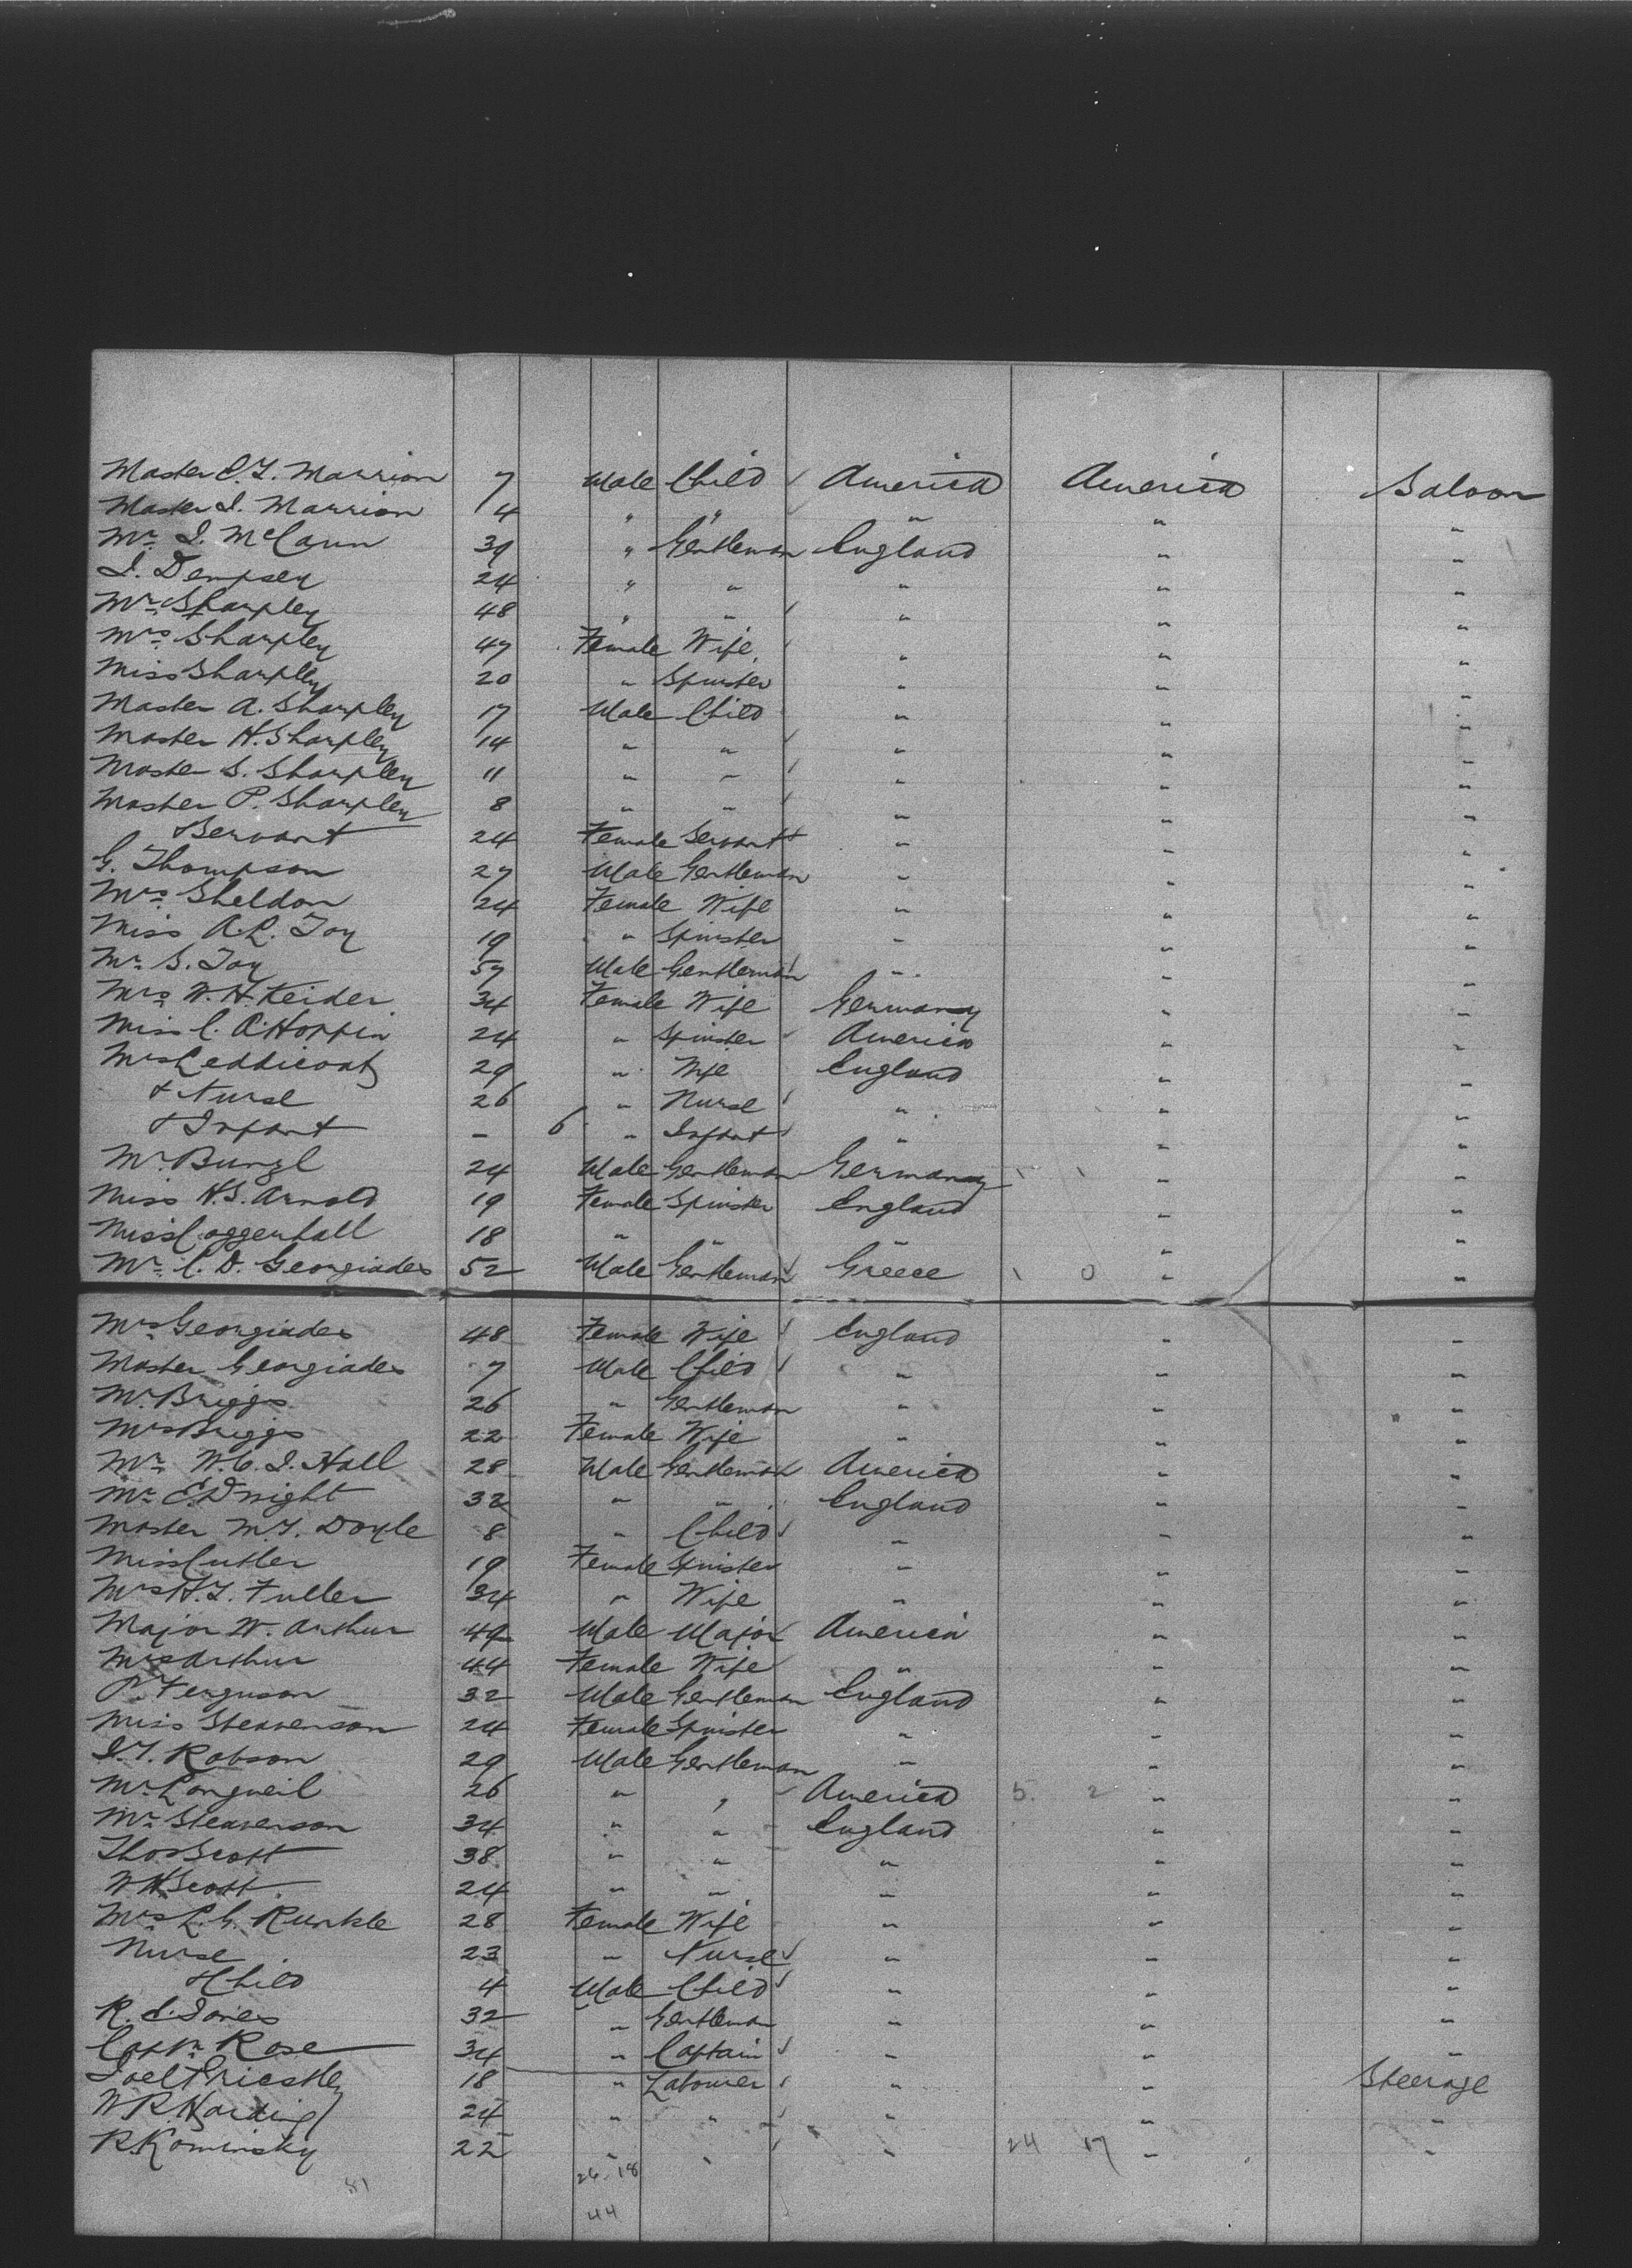 Master C.T. Marrion 7 Male Child America America Saloon
Master I. Marrion 4 " " " " "
Mr. I. McCann 39 " Gentleman England " "
I. Dempsey 24 " " " " "
Mr. Sharpley 48 " " " " "
Mrs. Sharpley 47 Female Wife " " "
Miss Sharpley 20 " Spinster " " "
Master A. Sharpley 17 Male Child " " "
Master H. Sharpley 14 " " " " "
Master S. Sharpley 11 " " " " "
Master P. Sharpley 8 " " " " "
+ Servant 24 Female Servant " " "
G. Thompson 27 Male Gentleman " " "
Mrs. Sheldon 24 Female Wife " " "
Miss A.L. Toy 19 " Spinster " " "
Mr. S. Toy 57 Male Gentleman " " "
Mrs. W.H. Keider 34 Female Wife Germany " "
Miss C. A. Hoppin 24 " Spinster America " "
Mrs Leddicoat 29 " Wife England " "
+ Nurse 26 " Nurse " " "
+ Infant - 6 " Infant " " "
Mr. Bunzl 24 Male Gentleman Germany " "
Miss N.S. Arnold 19 Female Spinster England " "
Miss Coggenhall 18 " " " "
Mr. C.D. Georgiades 52 Male Gentleman Greece 1 0 " "
Mrs. Georgiades 48 Female Wife England " "
Master Georgiades 7 Male Child " " "
Mr. Briggs 26 " Gentleman " " "
Mrs Briggs 22 Female Wife " " "
Mr. W.C.I. Hall 28 Male Gentleman America " "
Mr. E. Dwight 32 " " England " "
Master M.T. Doyle 8 " Child " " "
Miss Cutler 19 Female Spinster " " "
Mrs H.T. Fuller 34 " Wife " " "
Major W. Arthur 49 Male Major America " "
Mrs Arthur 44 Female Wife " " "
P. Ferguson 32 Male Gentleman England " "
Miss Steavenson 24 Female Spinster " " "
I.T. Robson 29 Male Gentleman " " "
Mr. Longueil 26 " " America 5 2 " "
Mr. Steavenson 34 " " England " "
Thos Scott 38 " " " " "
W H Scott 24 " " " " "
Mrs L.G. Runkle 28 Female Wife " " "
Nurse 23 " Nurse " " "
+ Child 4 Male Child " " "
R. E. Jones 32 " Gentleman " " "
Captn. Rose 34 " Captain " " "
Joel Priestley 18 " Labourer " " Steerage
W R Harding 24 " " " " "
R. Kominsky 22 " " " 24 17 " "
26-18
81
44